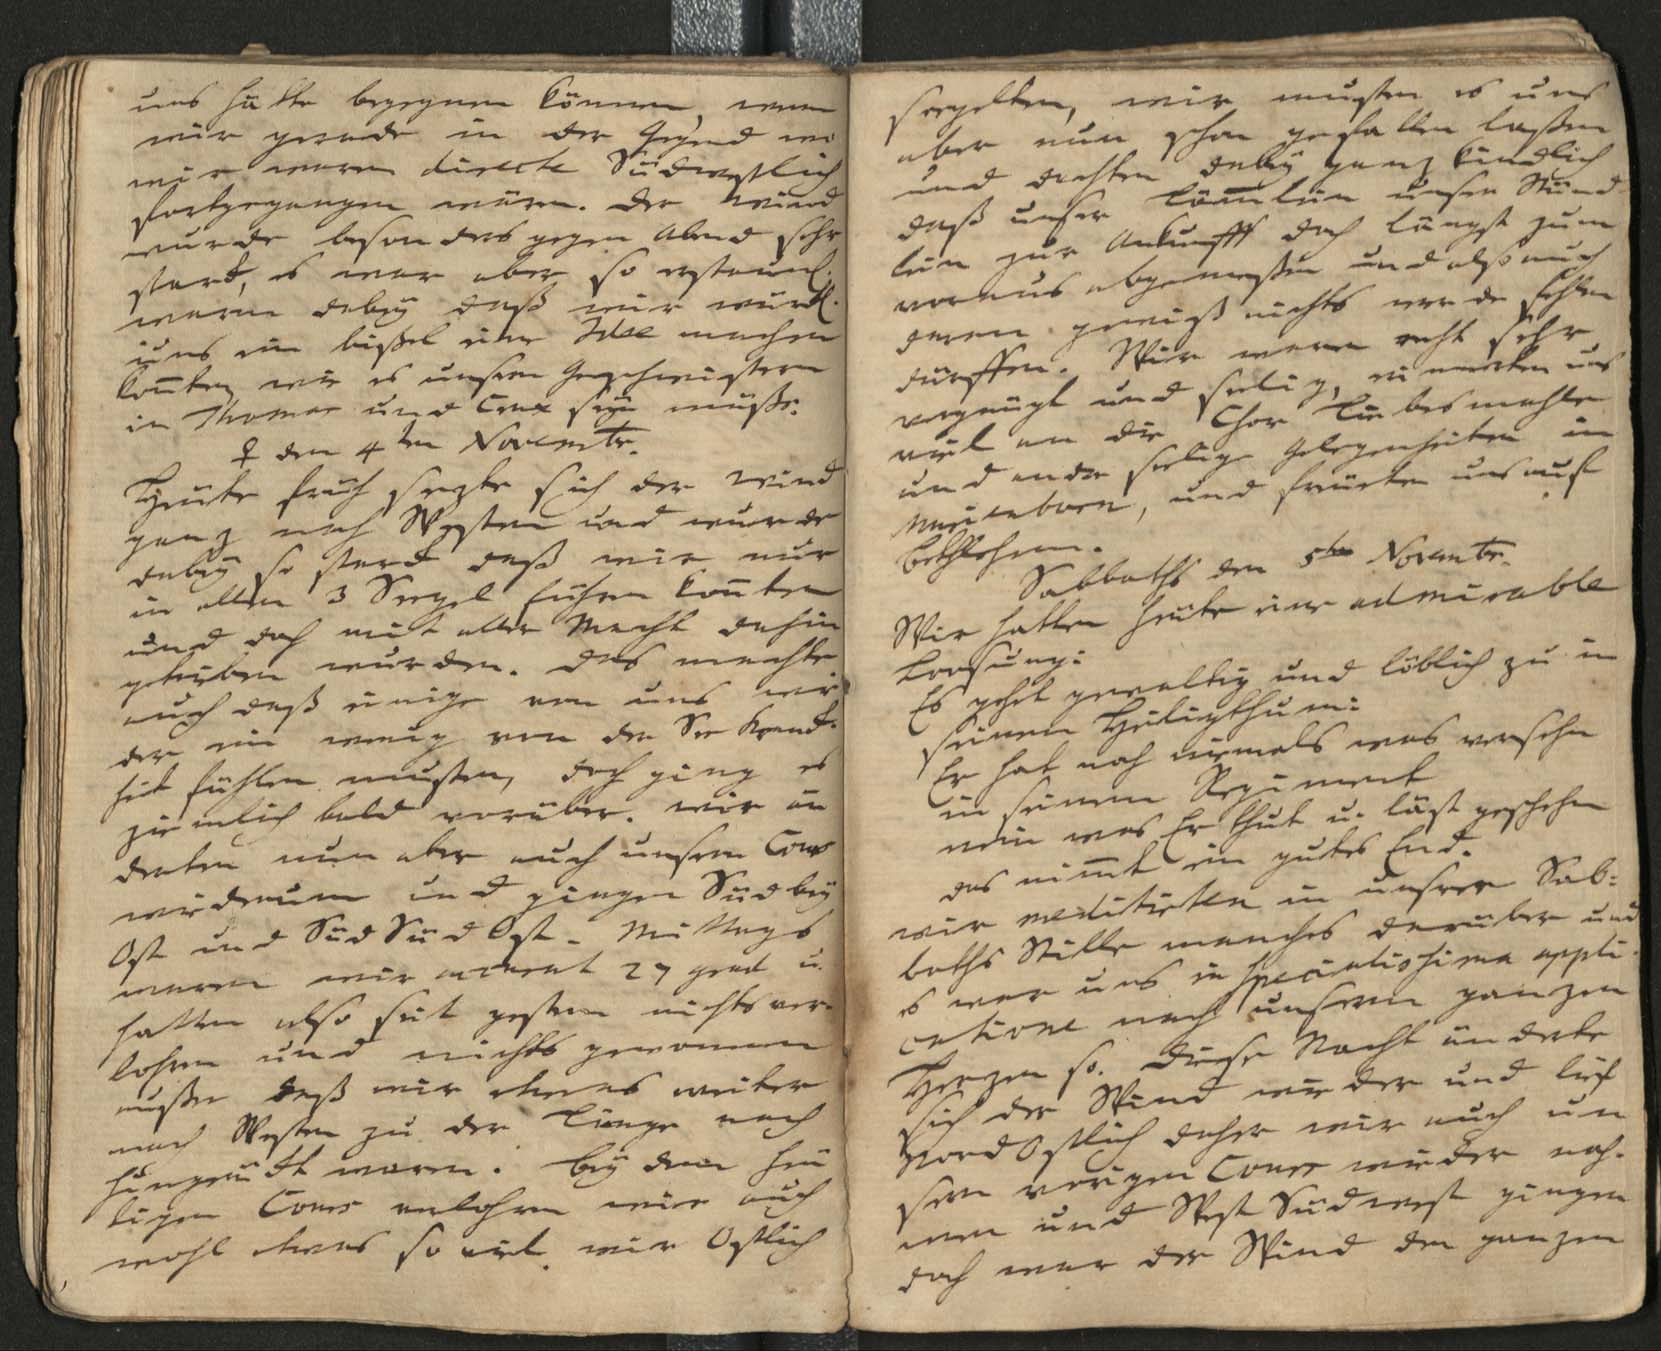 uns hätte begegnen können, wenn
wir gerade in der Gegend wo
wir waren directe Südwestlich
fortgegangen wären. Der Wind
wurde besonders gegen Abend sehr
starck, es war aber so erstaunl.
warm dabeÿ daß wir würckl.
uns ein bißel eine Idee machen
konten, wie es unsern Geschwistern
in Thomas und Crux seÿn müße.
♀ den 4ten Novembr.
Heute früh sezte sich der Wind
ganz nach Westen und wurde
dabeÿ so starck daß wir nur
in allen 3 Seegel führen konten
und doch mit aller Macht dahin
getrieben wurden. Das machte
auch daß einige von uns wie
der ein wenig von der See Kranck-
heit fühlen musten, doch ging es
ziemlich bald vorüber. Wir än
derten nun aber auch unsern Cours
wiederum und gingen Süd beÿ
Ost und Süd Süd Ost. Mittags
waren wir accurat 27 grad u.
hatten also seit gestern nichts ver-
lohren und nichts gewonnen
außer daß wir etwas weiter
nach Westen zu der Länge nach
hingerückt waren. Beÿ dem heu
tigen Cours verlohren wir auch
wohl etwas so viel wir Ostlich
seegelten, wir musten es uns
aber nun schon gefallen laßen
und dachten dabeÿ ganz kindlich
daß unser Lämlein unser Stünd
lein zur Ankunfft doch längst zum
voraus abgemeßen und also auch
daran gewiß nichts werde fehlen
dürffen. Wir waren recht sehr
vergnügt und seelig, erinnerten uns
viel an die Chor Liebesmahle
und andre seelige Gelegenheiten in
Marienborn, und freuten uns auf
Bethlehem.
Sabbaths den 5ten Novembr.
Wir hatten heute eine admirable
Loosung:
Es gehet gewaltig und löblich zu in
seinem Heiligthum:
Er hat noch niemals was versehn
in seinem Regiment
nein was Er thut u. läst geschehn
das nimt ein gutes End.
wir meditirten in unsrer Sab-
baths Stille manches darüber und
es war uns in specialissima appli-
catione nach unserm ganzen
Herzen so. Diese Nacht änderte
sich der Wind wieder und lief
NordOstlich daher wir auch un
sern vorigen Cours wieder nah-
men und West Südwest gingen
doch war der Wind den ganzen